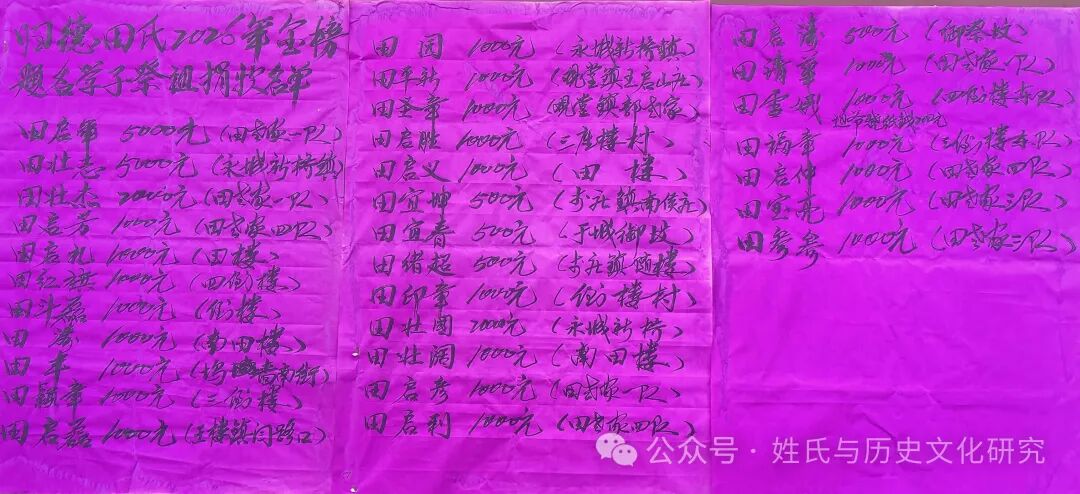 归德田氏2026年金榜
题名学子祭祖捐款名单
田启军 5000元 (田老家一队)
田壮志 5000元 (永城新桥镇)
田壮杰 2000元 (田老家一队)
田启芳 1000元 (田老家四队)
田启礼 1000元 (田楼)
田红旗 1000元 (四衙楼)
田斗磊 1000元 (衙楼)
田涛 1000元 (南田楼)
田丰 1000元 (南街)
田颖章 1000元 (三衙楼)
田启磊 1000元 (王楼镇闫路口)
田园 1000元 (永城新桥镇)
田平新 1000元 (观堂镇王启山庄)
田圣章 1000元 (观堂镇郭老家)
田启胜 1000元 (三座楼村)
田启义 1000元 (田楼)
田宜坤 500元 (李庄镇南侯庄)
田宜春 500元 (于城御坟)
田绪超 500元 (李庄镇随楼)
田印章 1000元 (衙楼村)
田壮阔 2000元 (永城新桥)
田壮阔 1000元 (南田楼)
田启彦 1000元 (田老家一队)
田启利 1000元 (田老家四队)
田启涛 500元 (御祭坟)
田清军 1000元 (田老家一队)
田雪娥 1000元 (四衙楼东队)
田福章 1000元 (三衙楼东队)
田启仲 1000元 (田老家四队)
田宝亮 1000元 (田老家三队)
田参参 1000元 (田老家三队)
公众号·姓氏与历史文化研究